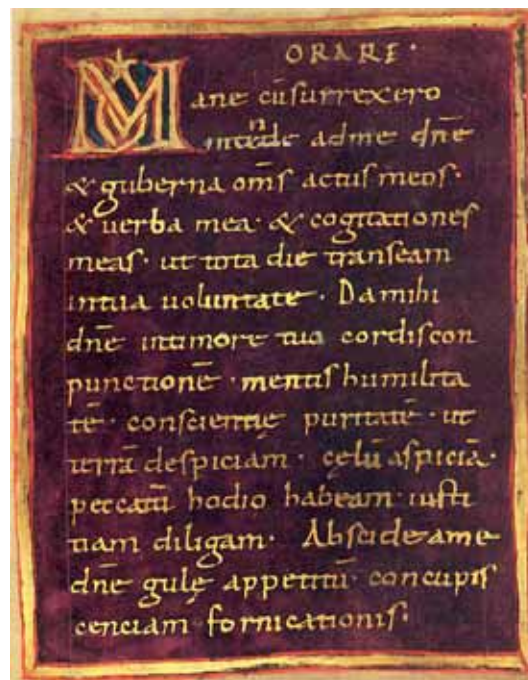 ORARE·
Mane cū surrexero
intende ad me dn̄e
& guberna om̄s actus meos·
& uerba mea· & cogitationes
meas· ut tota die transeam
in tua uoluntate· Da mihi
dn̄e in timore tuo cordis con
punctionē· mentis humilita
tē· conscientię puritatē· ut
terrā despiciam· cęlū aspiciā·
peccatū hodio habeam· iusti
tiam diligam· Abscide a me
dn̄e gulę appetitū· concupis
cenciam fornicationis·